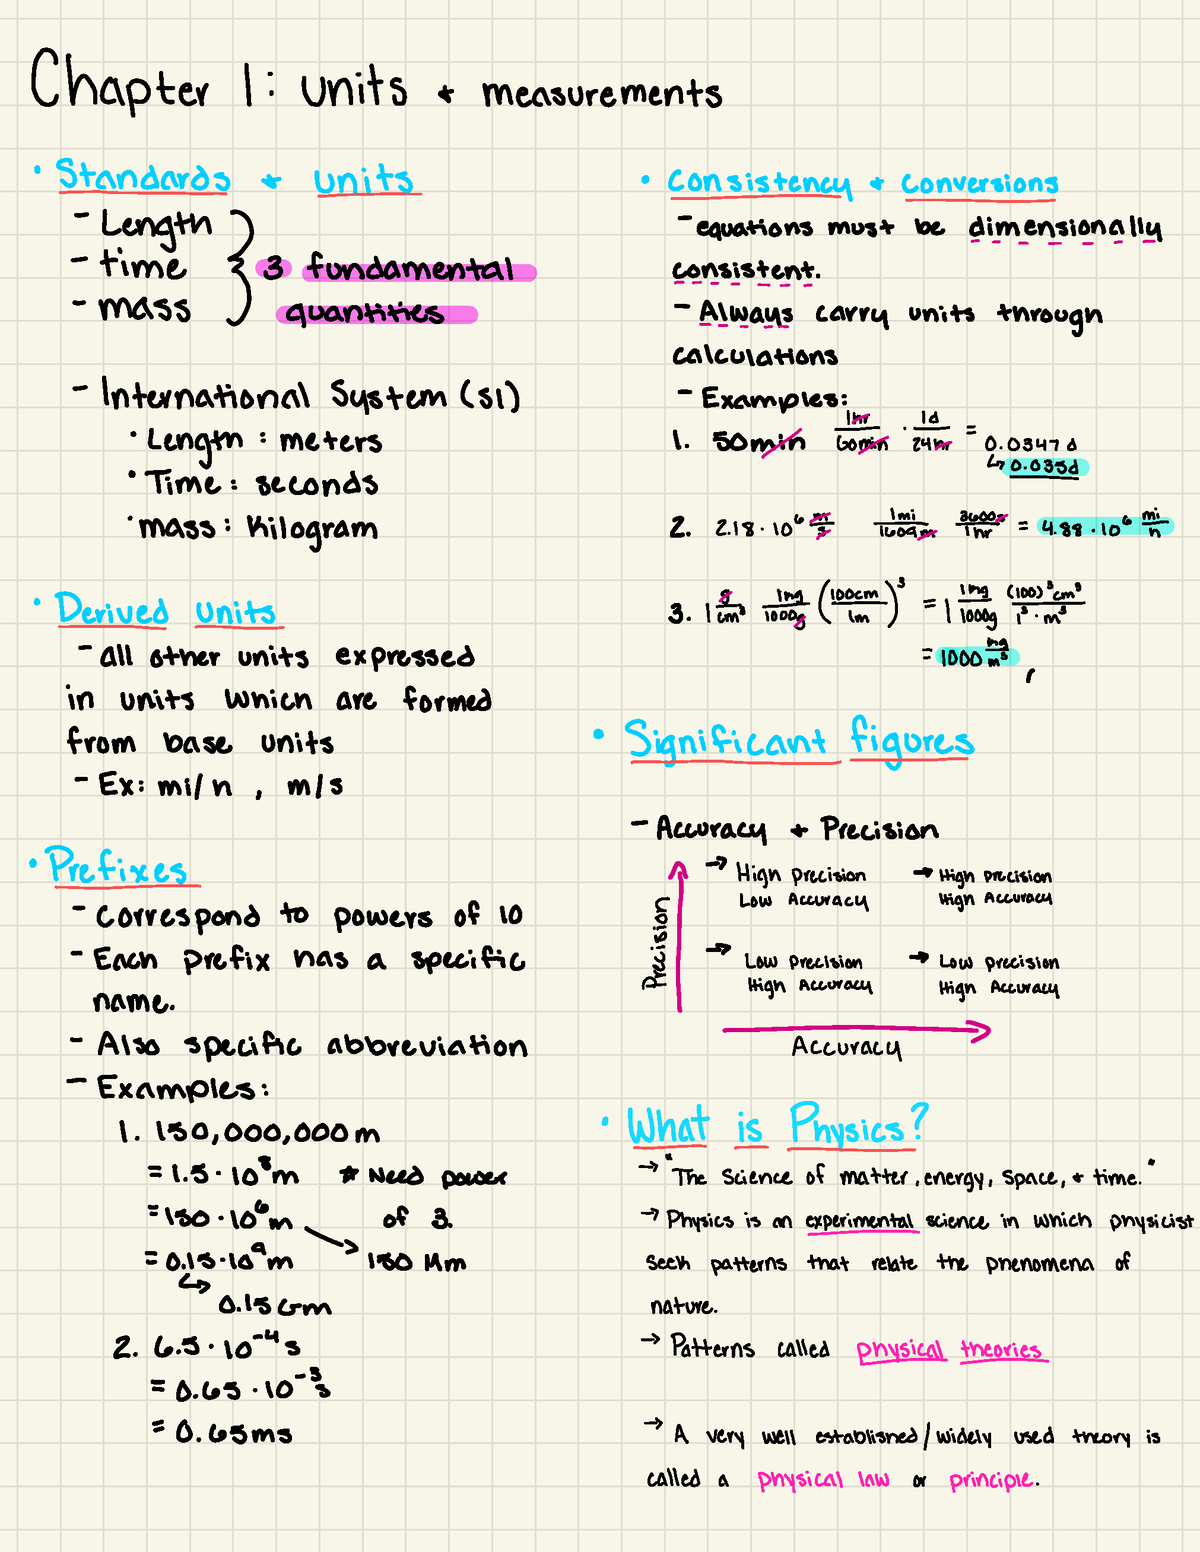 Chapter 1: Units + measurements
• Standards + units
- Length
- time
- mass
3 fundamental
quantities
- International System (SI)
• Length : meters
• Time : seconds
• mass : Kilogram
• Derived units
- all other units expressed
in units which are formed
from base units
- Ex: mi/h , m/s
• Prefixes
- Correspond to powers of 10
- Each prefix has a specific
name.
- Also specific abbreviation
- Examples:
1. 150,000,000 m
= 1.5 · 10⁸ m * Need power
= 150 · 10⁶ m of 3.
= 0.15 · 10⁹ m → 150 Mm
↳ 0.15 Gm
2. 6.5 · 10⁻⁴ s
= 0.65 · 10⁻³ s
= 0.65 ms
• Consistency + Conversions
- equations must be dimensionally
consistent.
- Always carry units through
calculations
- Examples:
1. 50 min 1hr/60min · 1d/24hr = 0.0347 d
↳ 0.035d
2. 2.18 · 10⁶ m/s 1mi/1609m 3600s/1hr = 4.88 · 10⁶ mi/h
3. 1 g/cm³ 1kg/1000g (100cm/1m)³ = 1 1kg/1000g (100)³cm³/1³·m³
= 1000 kg/m³
• Significant figures
- Accuracy + Precision
Precision
→ High Precision → High Precision
Low Accuracy High Accuracy
→ Low Precision → Low Precision
High Accuracy High Accuracy
Accuracy
• What is Physics?
→ "The Science of matter, energy, space, + time."
→ Physics is an experimental science in which physicist
seek patterns that relate the phenomena of
nature.
→ Patterns called physical theories
→ A very well established/widely used theory is
called a physical law or principle.